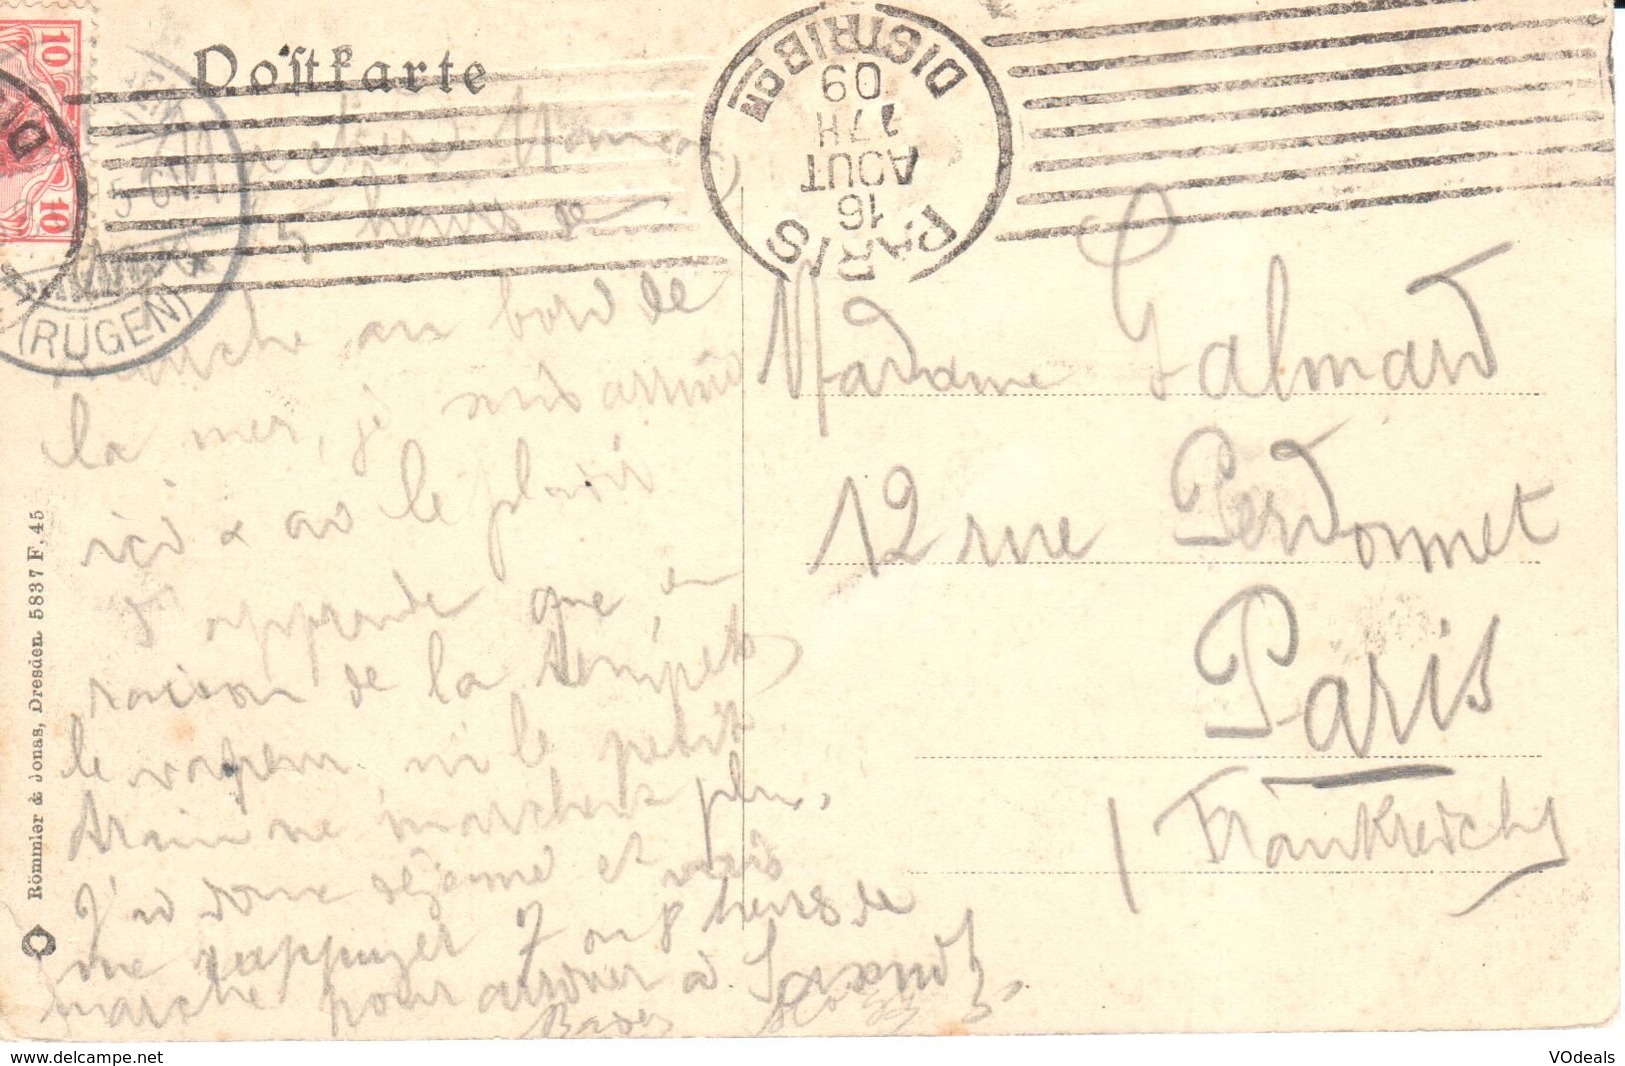 Postkarte
10
10
(RÜGEN)
PARIS
16
AOUT
17H
09
DISTRIBON
Ma chère Maman
5 heures de
marche au bord de
la mer, je suis arrivé
ici & ai le plaisir
d'apprendre que, en
raison de la tempête,
le vapeur ni le petit
train ne marchent plus.
J'ai donc déjeuné et vais
me rappuyer 7 ou 8 heures de
marche pour arriver à
Baisers
Madame Galmard
12 rue Perdonnet
Paris
(Frankreich)
Römmler & Jonas, Dresden 5837 F. 45
www.delcampe.net
VOdeals